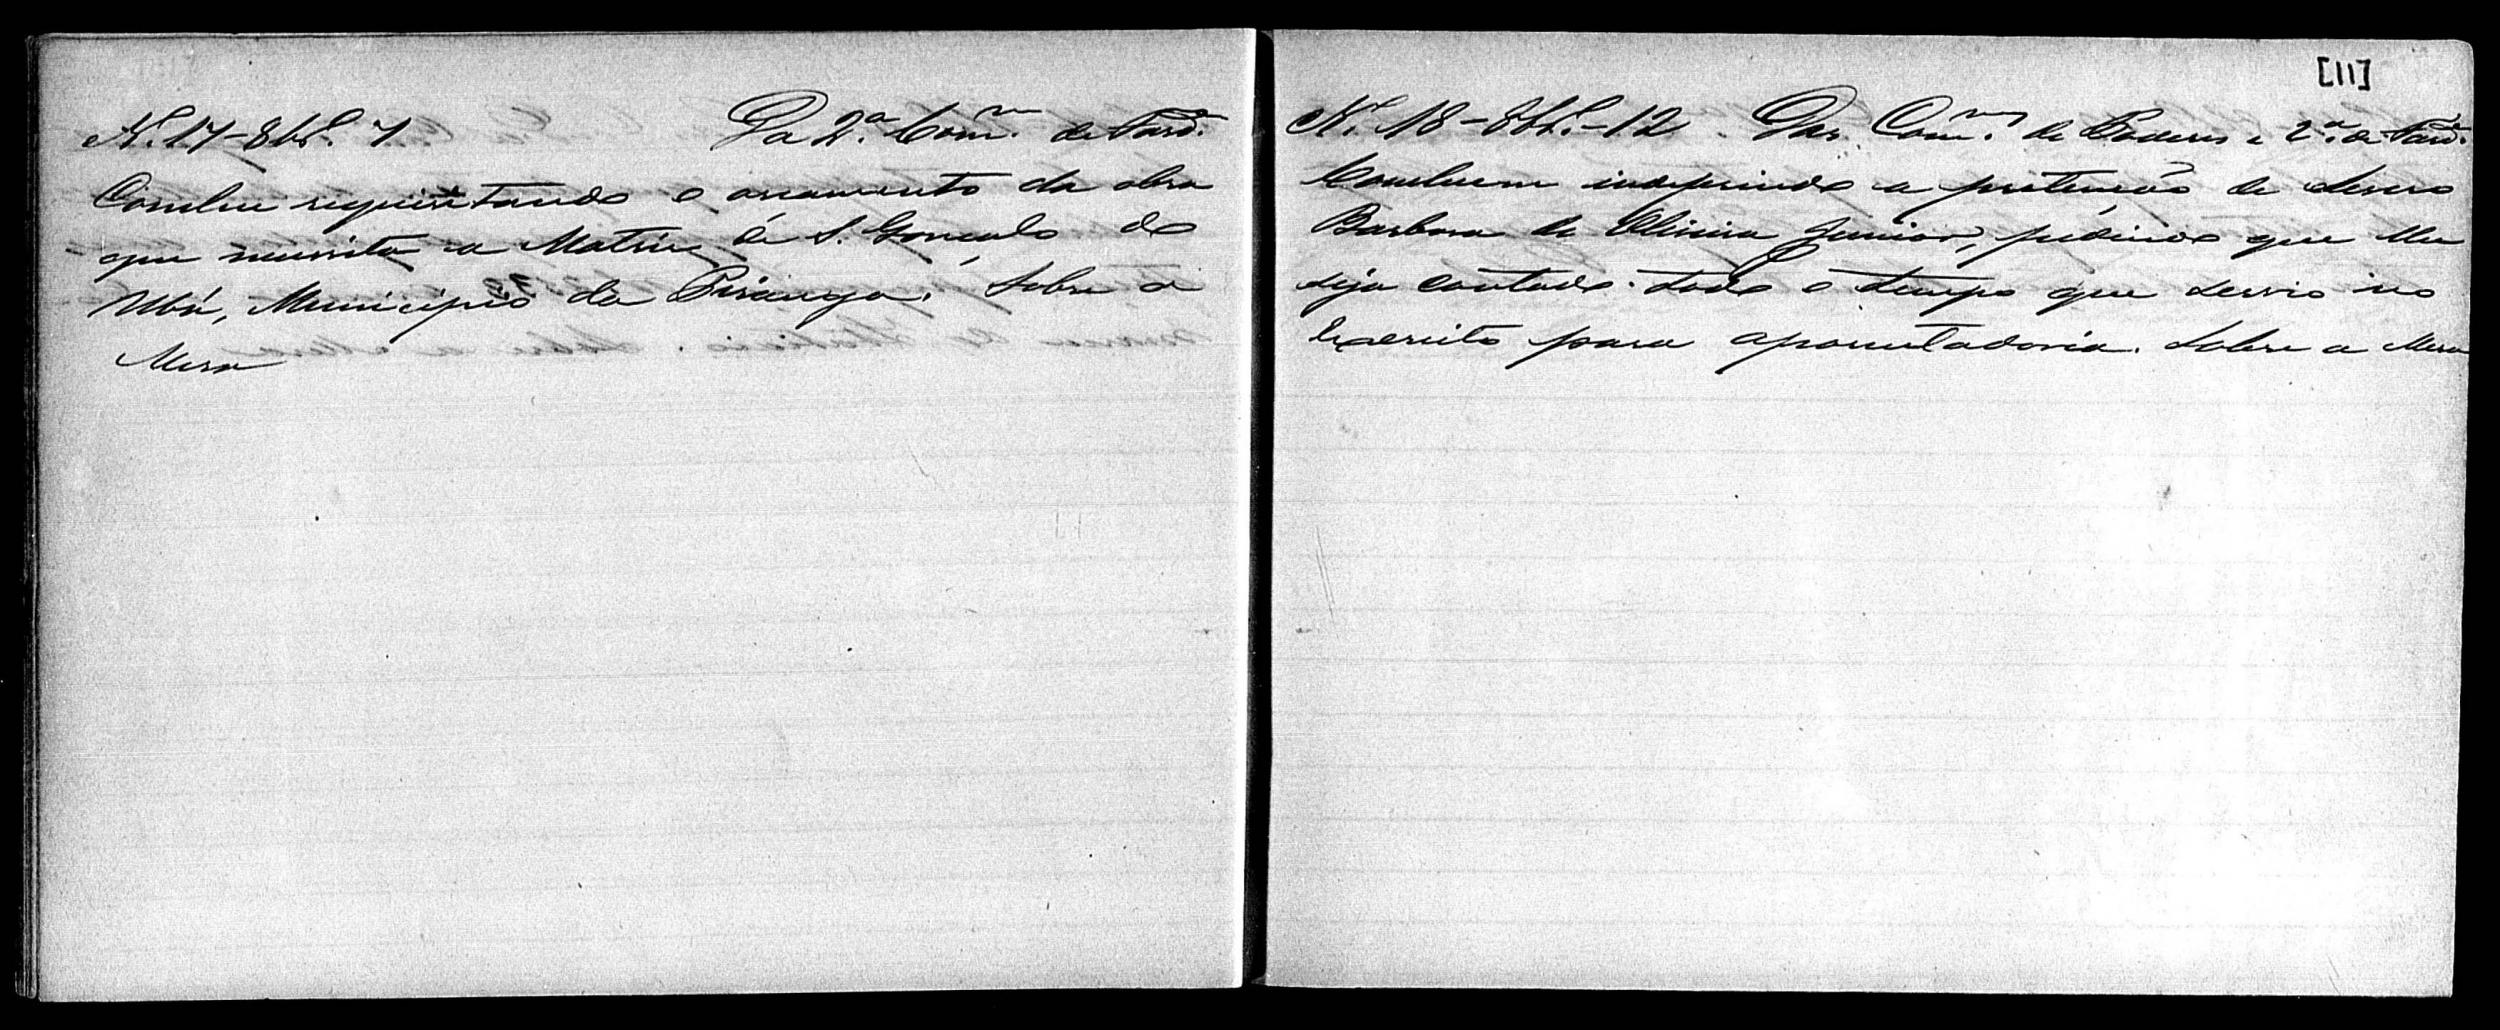 N. 17-8br.º 7 Da 2.ª Com.m de Faz.da
Conclue requisitando o orcamento da obra
que necessita a Matriz de S. Gonçalo do
Ubá, Municipio da Piranga. Sobre a
Mesa
[11]
N. 18-8br.º-12 Das Com.ns de Poderes e 2.ª de Faz.da
Concluem indeferindo a pretenção de Severo
Barbosa de Oliveira Junior, pedindo que lhe
seja contado todo o tempo que servio no
Exercito para aposentadoria. Sobre a Mesa